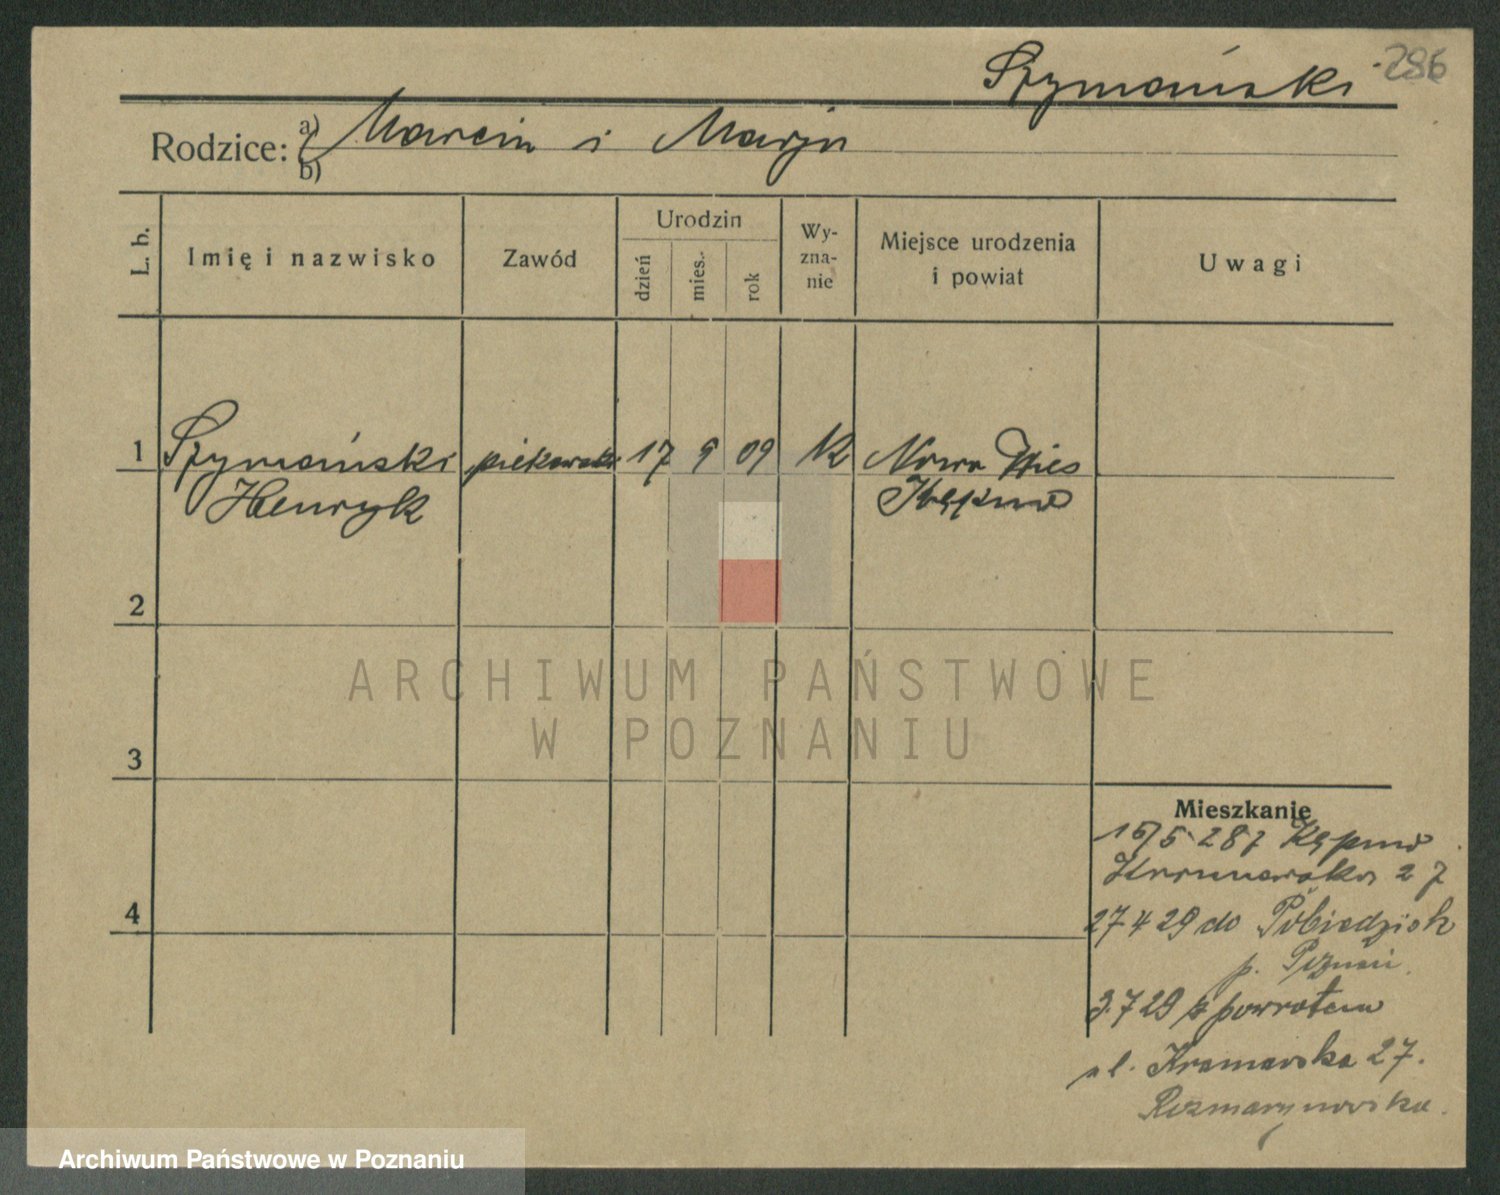 Szymański 286
Rodzice: a) Marcin i Marja
b)
L. b.
Imię i nazwisko
Zawód
Urodzin
dzień
mies.
rok
Wy-
zna-
nie
Miejsce urodzenia
i powiat
Uwagi
1 Szymański piekarski 17 9 09 K Nowa Wieś
Henryk Kępno
2
ARCHIWUM PAŃSTWOWE
W POZNANIU
3
Mieszkanie
15/5 28 z Kępno
Kramarska 27
4
27 4 29 do Pobiedzisk
p. Poznań
3.7 29 z powrotem
ul. Kramarska 27.
Archiwum Państwowe w Poznaniu